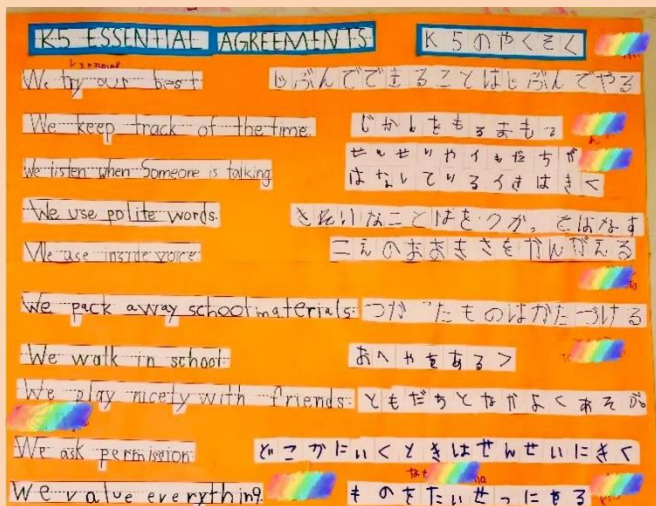 K5 ESSENTIAL AGREEMENTS K5のやくそく
We try our best じぶんでできることはじぶんでやる
We keep track of the time. じかんをもるまもる
We listen when Someone is talking せんせいやイもだちが
はなしているイきはきく
We use polite words. きれいなことばをつかってはなす
We use inside voice こえのおおきさをかんがえる
We pack away school materials. つかったものはかたづける
We walk in school おへやをあるく
We play nicely with friends. ともだちとなかよくあそぶ
We ask permission どこかにいくときはせんせいにきく
We value everything. ものをたいせつにする